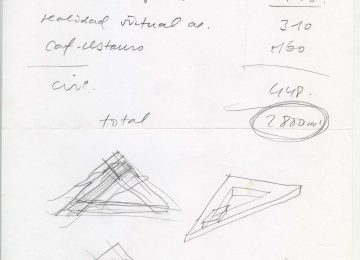 realidad virtual as. 310
caf-restauro 160
circ. 448.
total 2800 m²